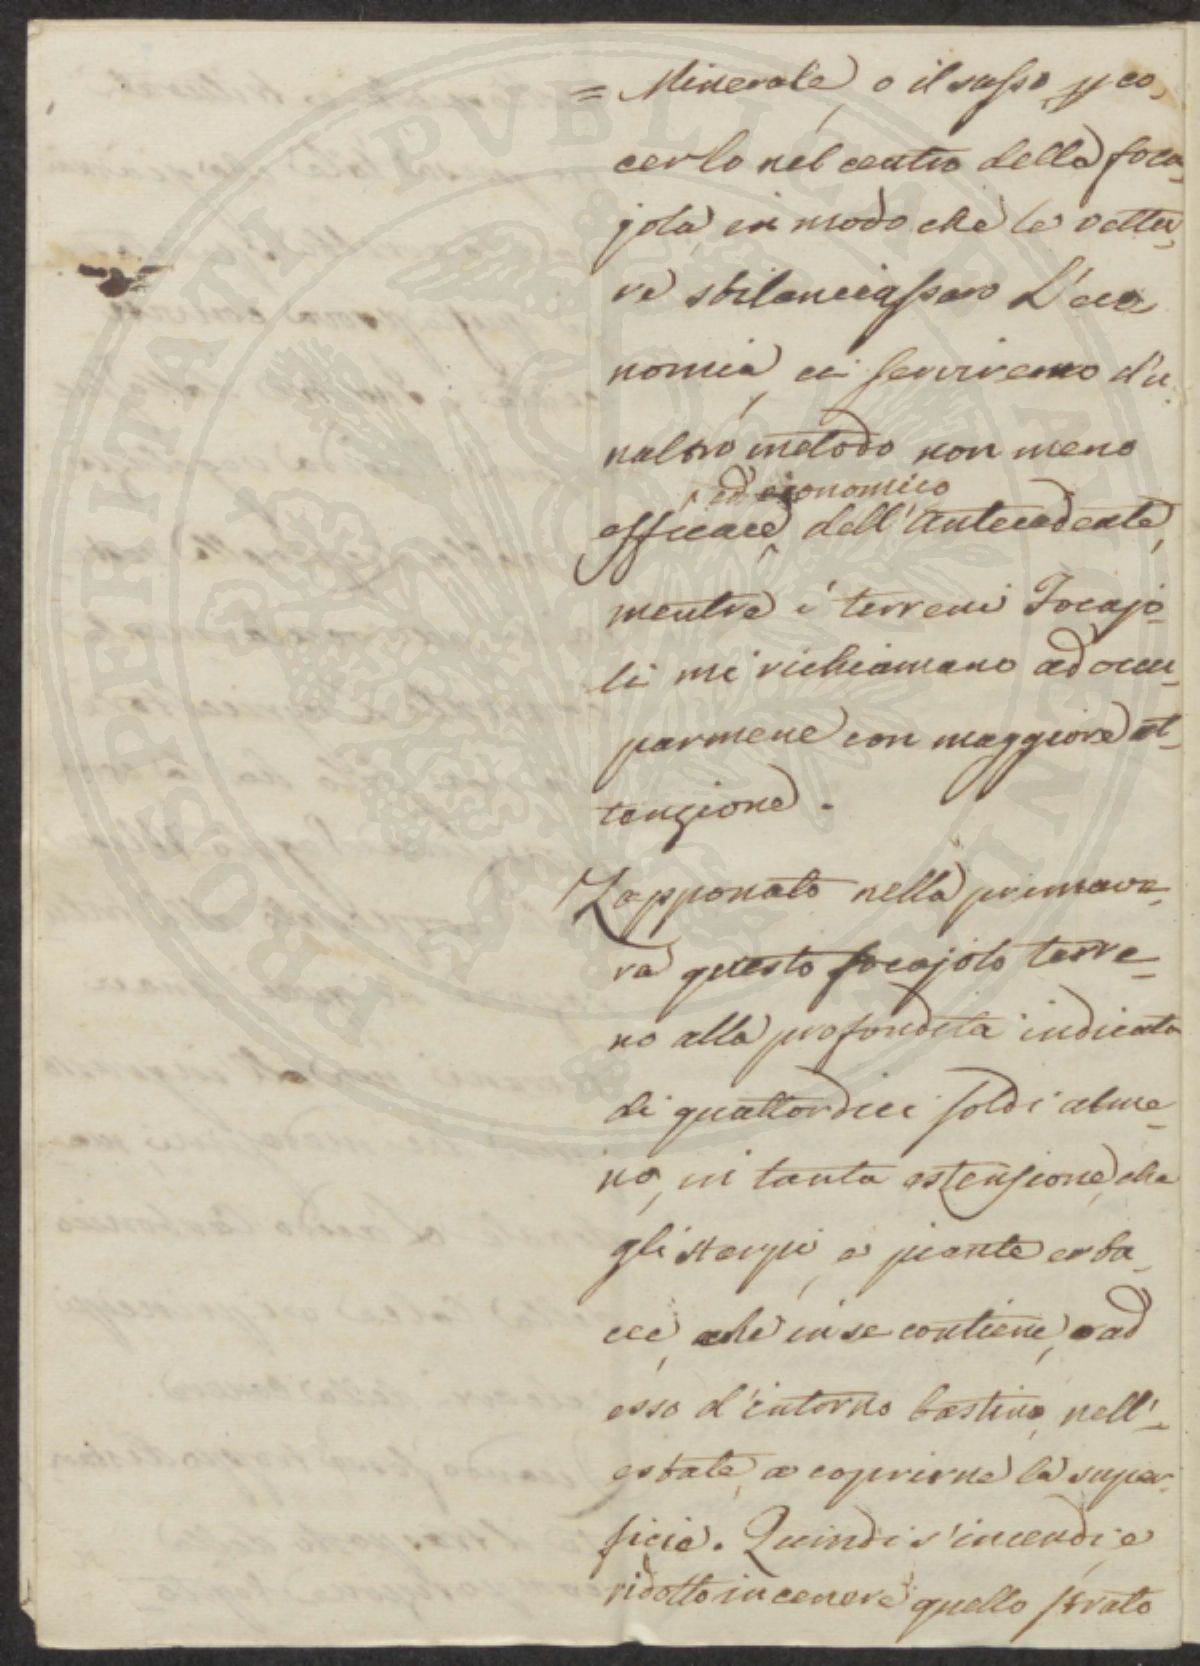 = Minerale, o il sasso, p co-
cerlo nel centro della foca-
jola, in modo che le vettu-
re sbilanciassero L'eco
nomia, ci serviremo d'u
naltro metodo non meno
^ ed economico
efficace dell'Antecedente,
mentre i terreni Focajo-
li mi richiamano ad occu-
parmene con maggiore at-
tenzione.
Zapponato nella primave-
ra questo focajolo terre-
no alla profondità indicata
di quattordici soldi alme-
no, in tanta estensione, che
gli sterpi, e piante erba-
cee, che in se contiene, o ad
esso d'intorno bastino, nell'-
estate, a coprirne la super-
ficie. Quindi s'incendi, e
ridotto in cenere quello strato
PROSPERITATI PVBLICAE AVGENDAE